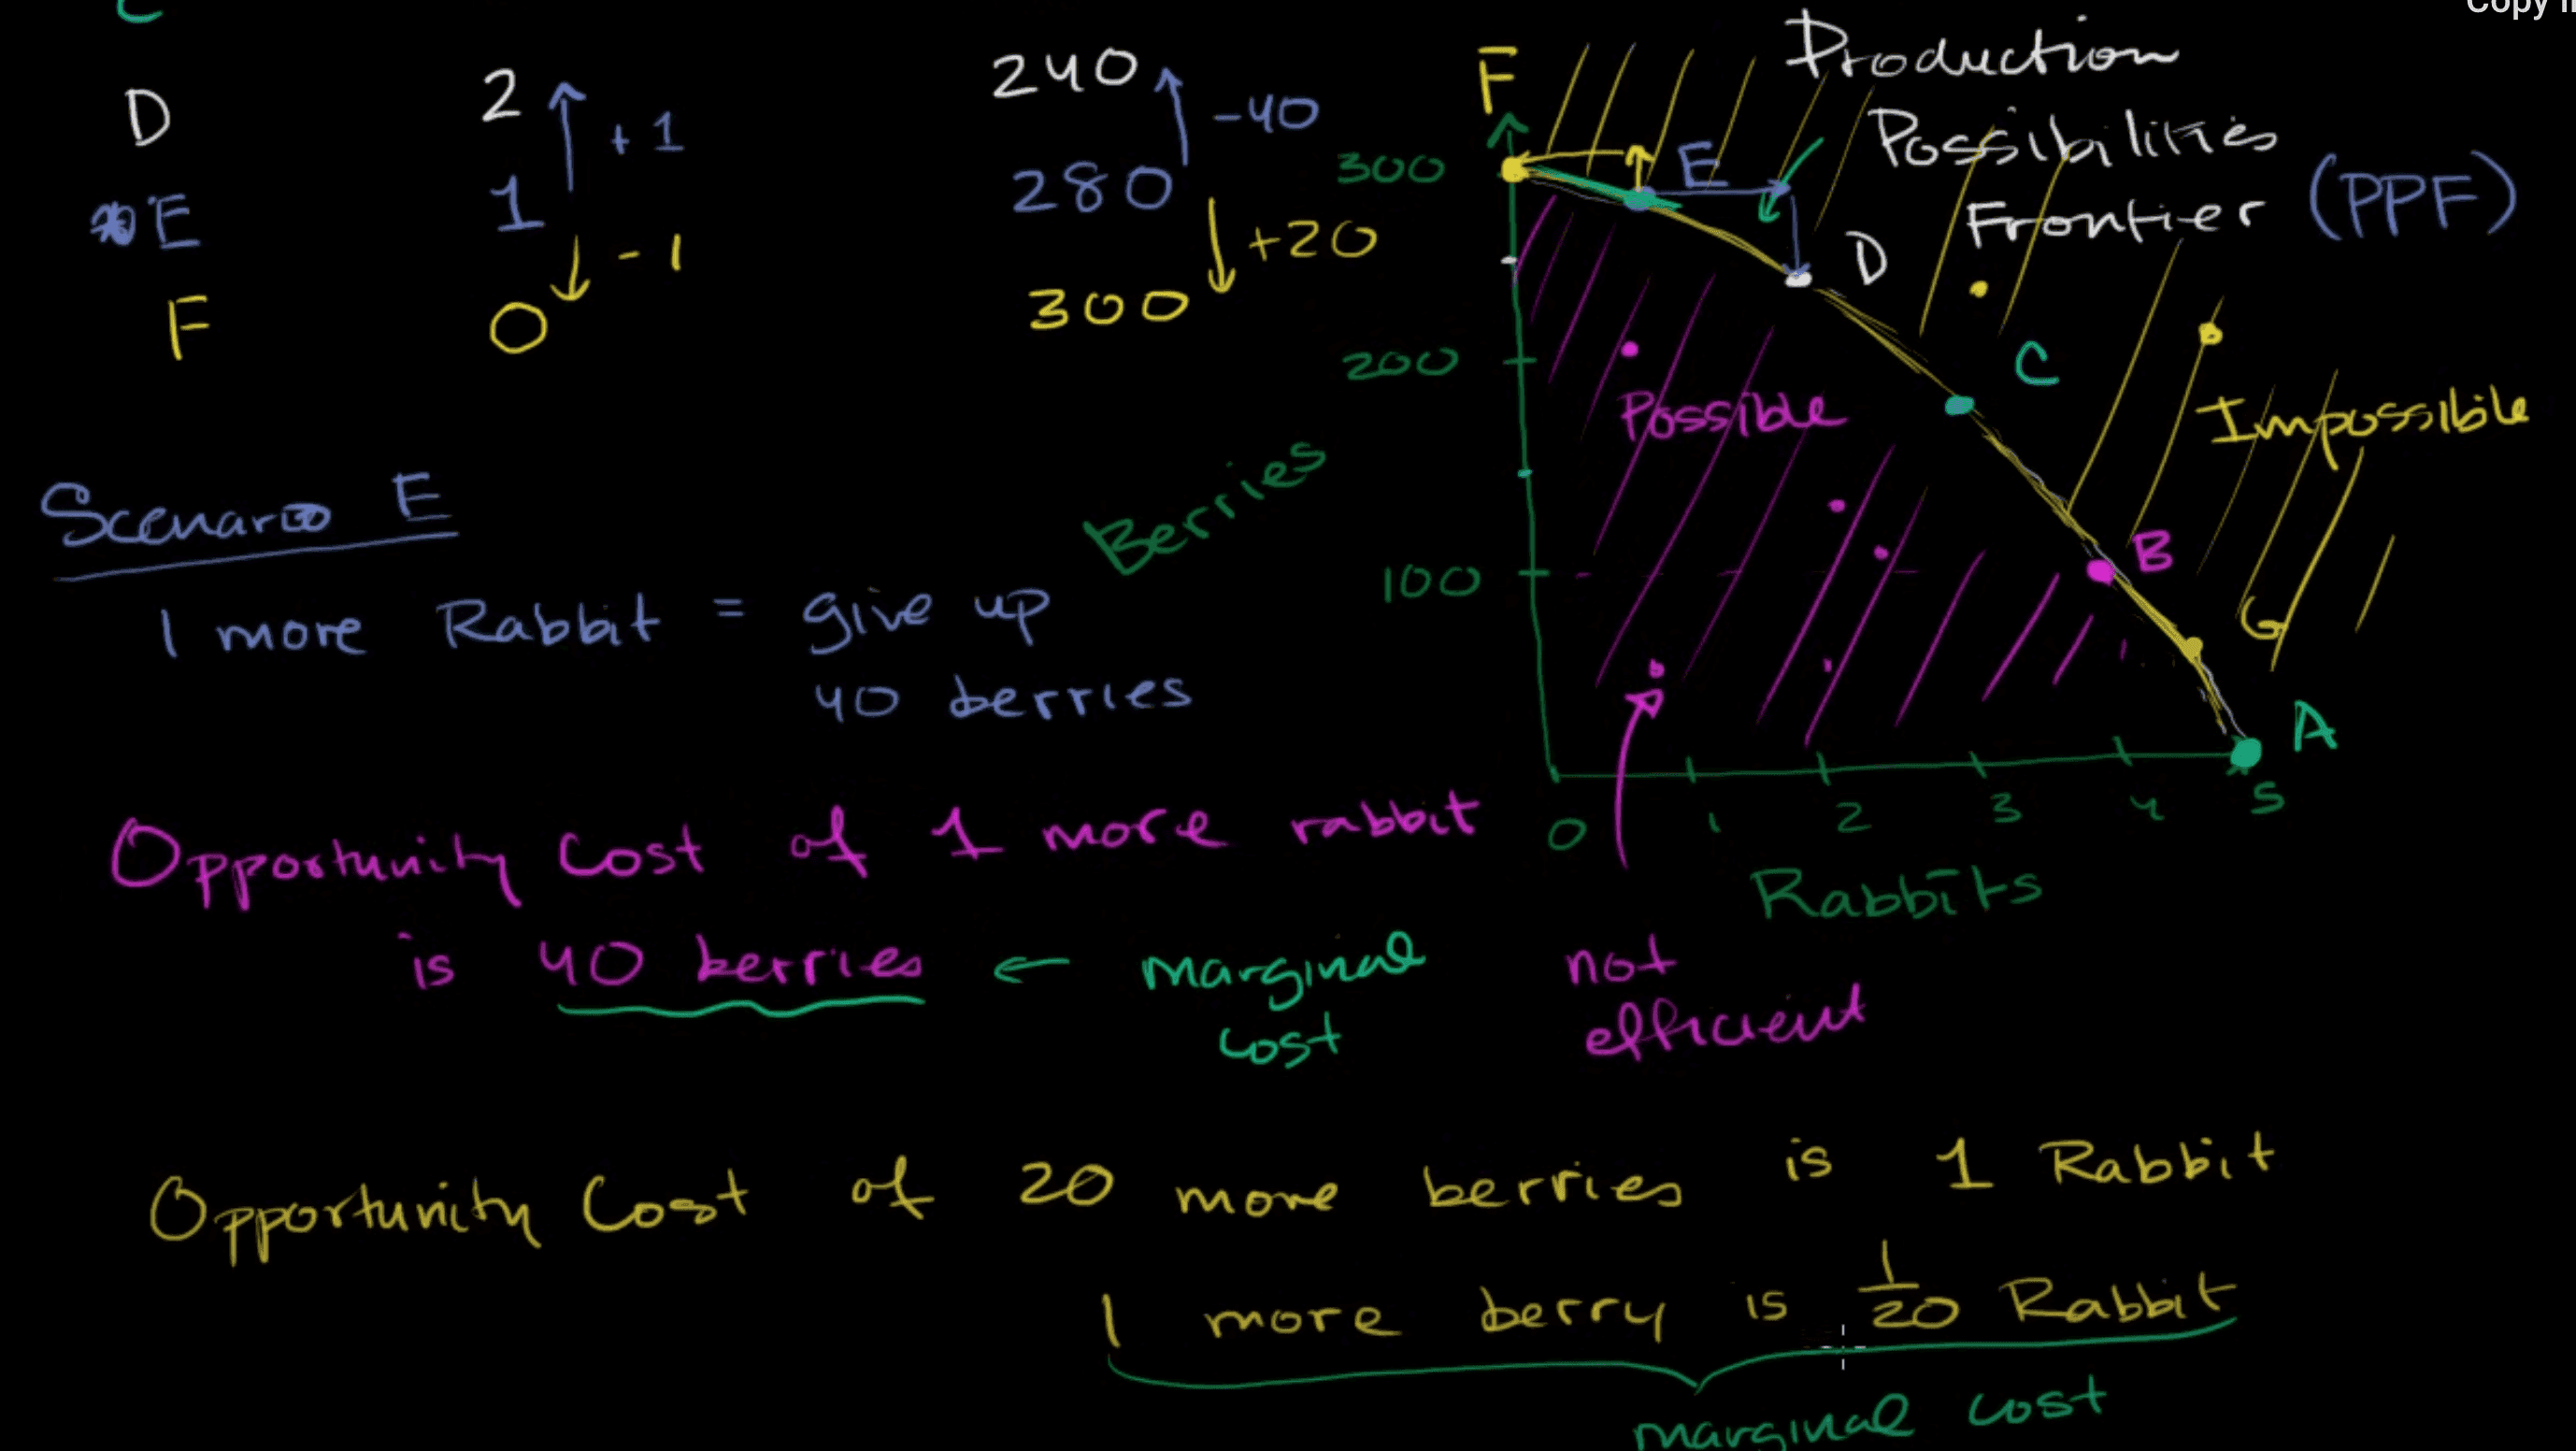 Copy
Production
Possibilities
Frontier (PPF)
D 2 240
+1 -40
E 1 280
-1 +20
F 0 300
F
300
200
100
Berries
E
D
C
B
G
A
Possible
Impossible
0 1 2 3 4 5
Rabbits
not
efficient
Scenario E
1 more Rabbit = give up
40 berries
Opportunity Cost of 1 more rabbit
is 40 berries ← marginal
cost
Opportunity Cost of 20 more berries is 1 Rabbit
1 more berry is 1/20 Rabbit
marginal cost